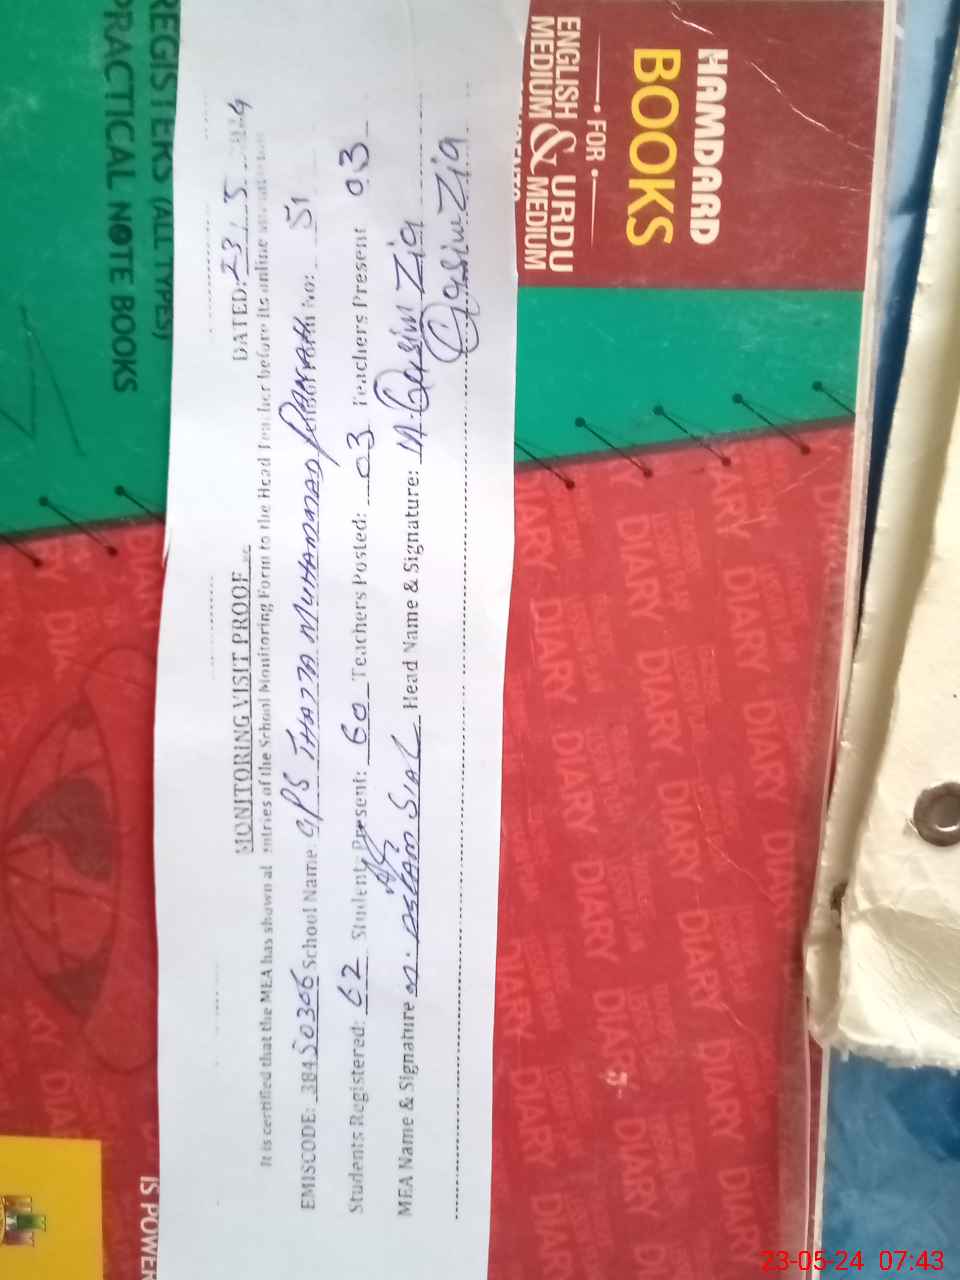 HAMDARD
BOOKS
FOR
ENGLISH & URDU
MEDIUM MEDIUM
REGISTERS (ALL TYPES)
PRACTICAL NOTE BOOKS
DATED: 23.5.
MONITORING VISIT PROOF
It is certified that the MEA has shown al entries of the School Monitoring Form to the Head Teacher before its online
EMISCODE: 38450306 School Name: GPS THATTA MUHAMMAD PANAH No: 51
Students Registered: 62 Students Present: 60 Teachers Posted: 03 Teachers Present 03
MEA Name & Signature M. ASLAM SIAL Head Name & Signature: M. Qasim Zia
Qasim Zia
DIARY DIARY DIARY DIARY
DIARY DIARY DIARY DIARY
DIARY DIARY DIARY DIARY
IS POWER
23-05-24 07:43